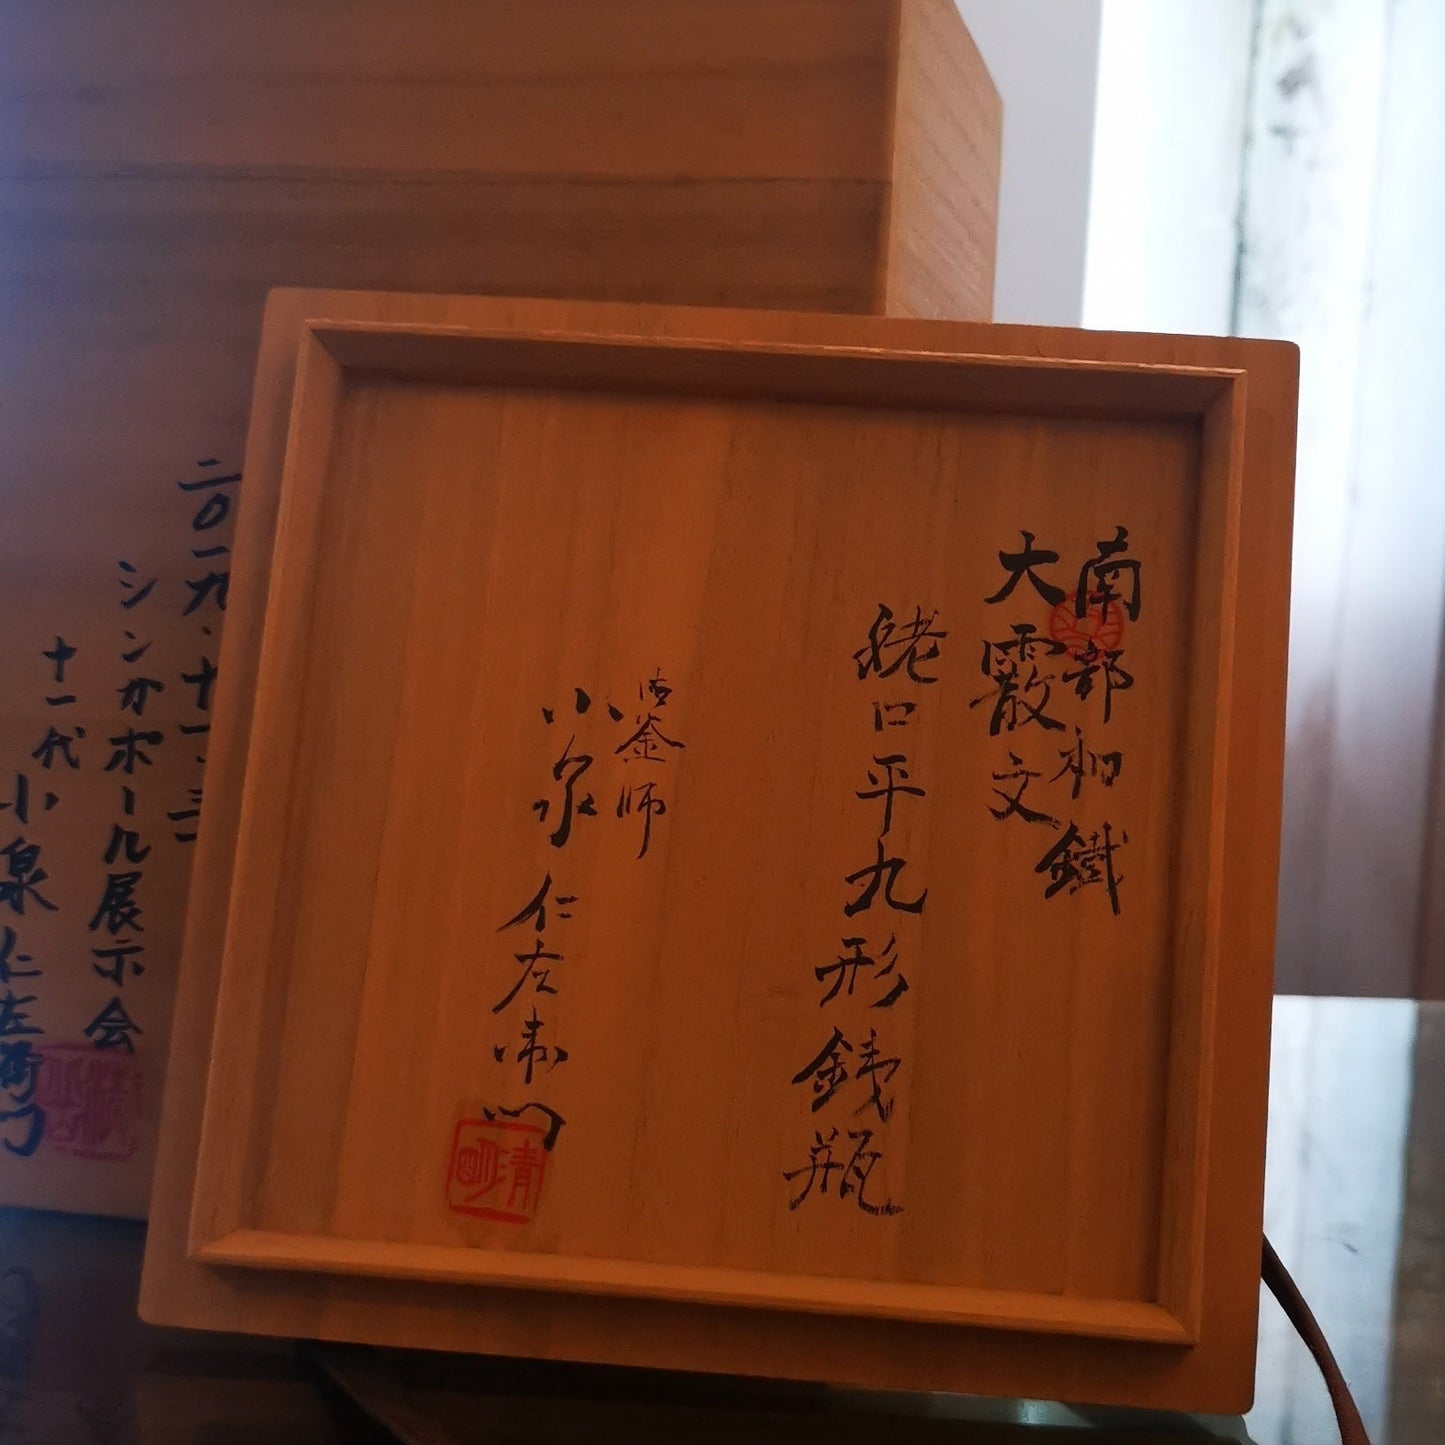 南部和鐵
大霰文
姥口平丸形鉄瓶
御釜師
小泉仁左衛門
清明
二〇一九・十一・三
シンガポール展示会
十一代 小泉仁左衛門